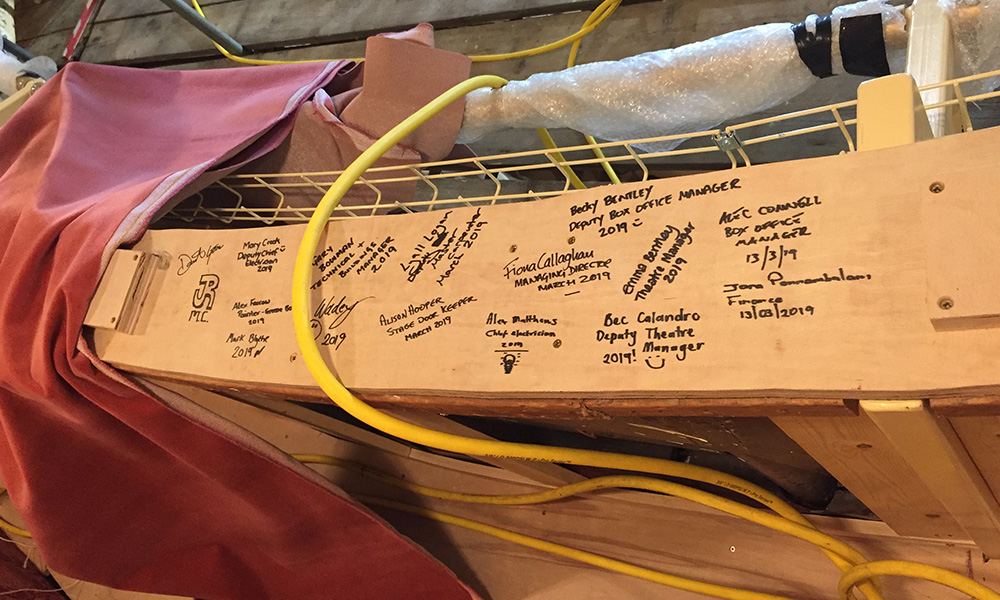 Mary Crook
Deputy Chief
Electrician
2019
JR
M.C.
Alex
Painter
2019
Mark Blythe
2019
BOWMAN
TECHNICAL +
BUILDING
MANAGER
2019
Wadey
2019
Logan
Master
Carpenter
March 2019
ALISON HOOPER
STAGE DOOR KEEPER
MARCH 2019
Fiona Callaghan
MANAGING DIRECTOR
MARCH 2019
Alex Matthews
Chief electrician
2019
Becky BENTLEY
DEPUTY BOX OFFICE MANAGER
2019
Emma Bentley
Theatre Manager
2019
Bec Calandro
Deputy Theatre
Manager
2019!
ALEC CONNELL
BOX OFFICE
MANAGER
13/3/19
Jana Ponnambalam
Finance
13/03/2019